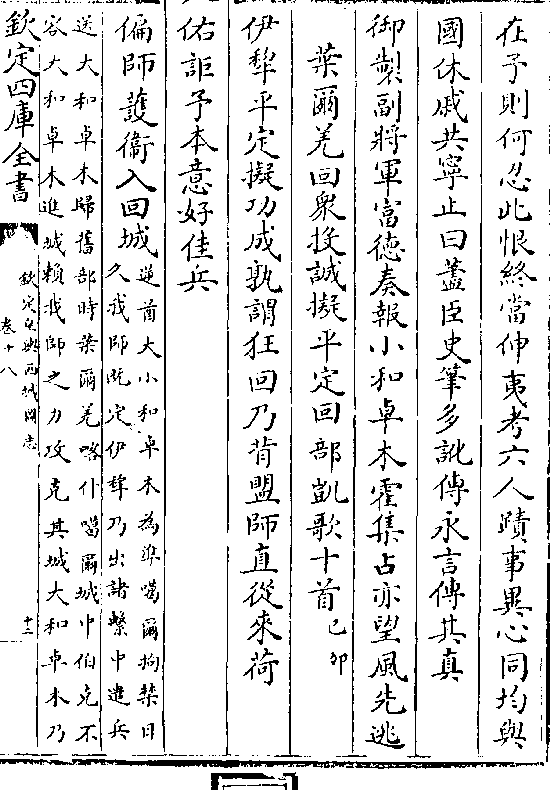 在予則何忍此恨終當伸夷考六人蹟事異心同均與
國休戚共寧止曰藎臣史筆多訛傳永言傳其真
御製副將軍富德奏報小和卓木霍集占亦望風先逃
葉爾羌回衆投誠擬平定回部凱歌十首己卯
伊犂平定擬功成孰謂狂回乃背盟師直從來荷
佑詎予本意好佳兵
偏師護衞入回城逆酋大小和卓木為準噶爾拘禁日
久我師既定伊犂乃出諸繫中遣兵
送大和卓木歸舊部時葉爾羌喀什噶爾城中伯克不
容大和卓木進城賴我師之力攻克其城大和卓木乃
欽定四庫全書
欽定皇輿西域圖志
卷十八
十二